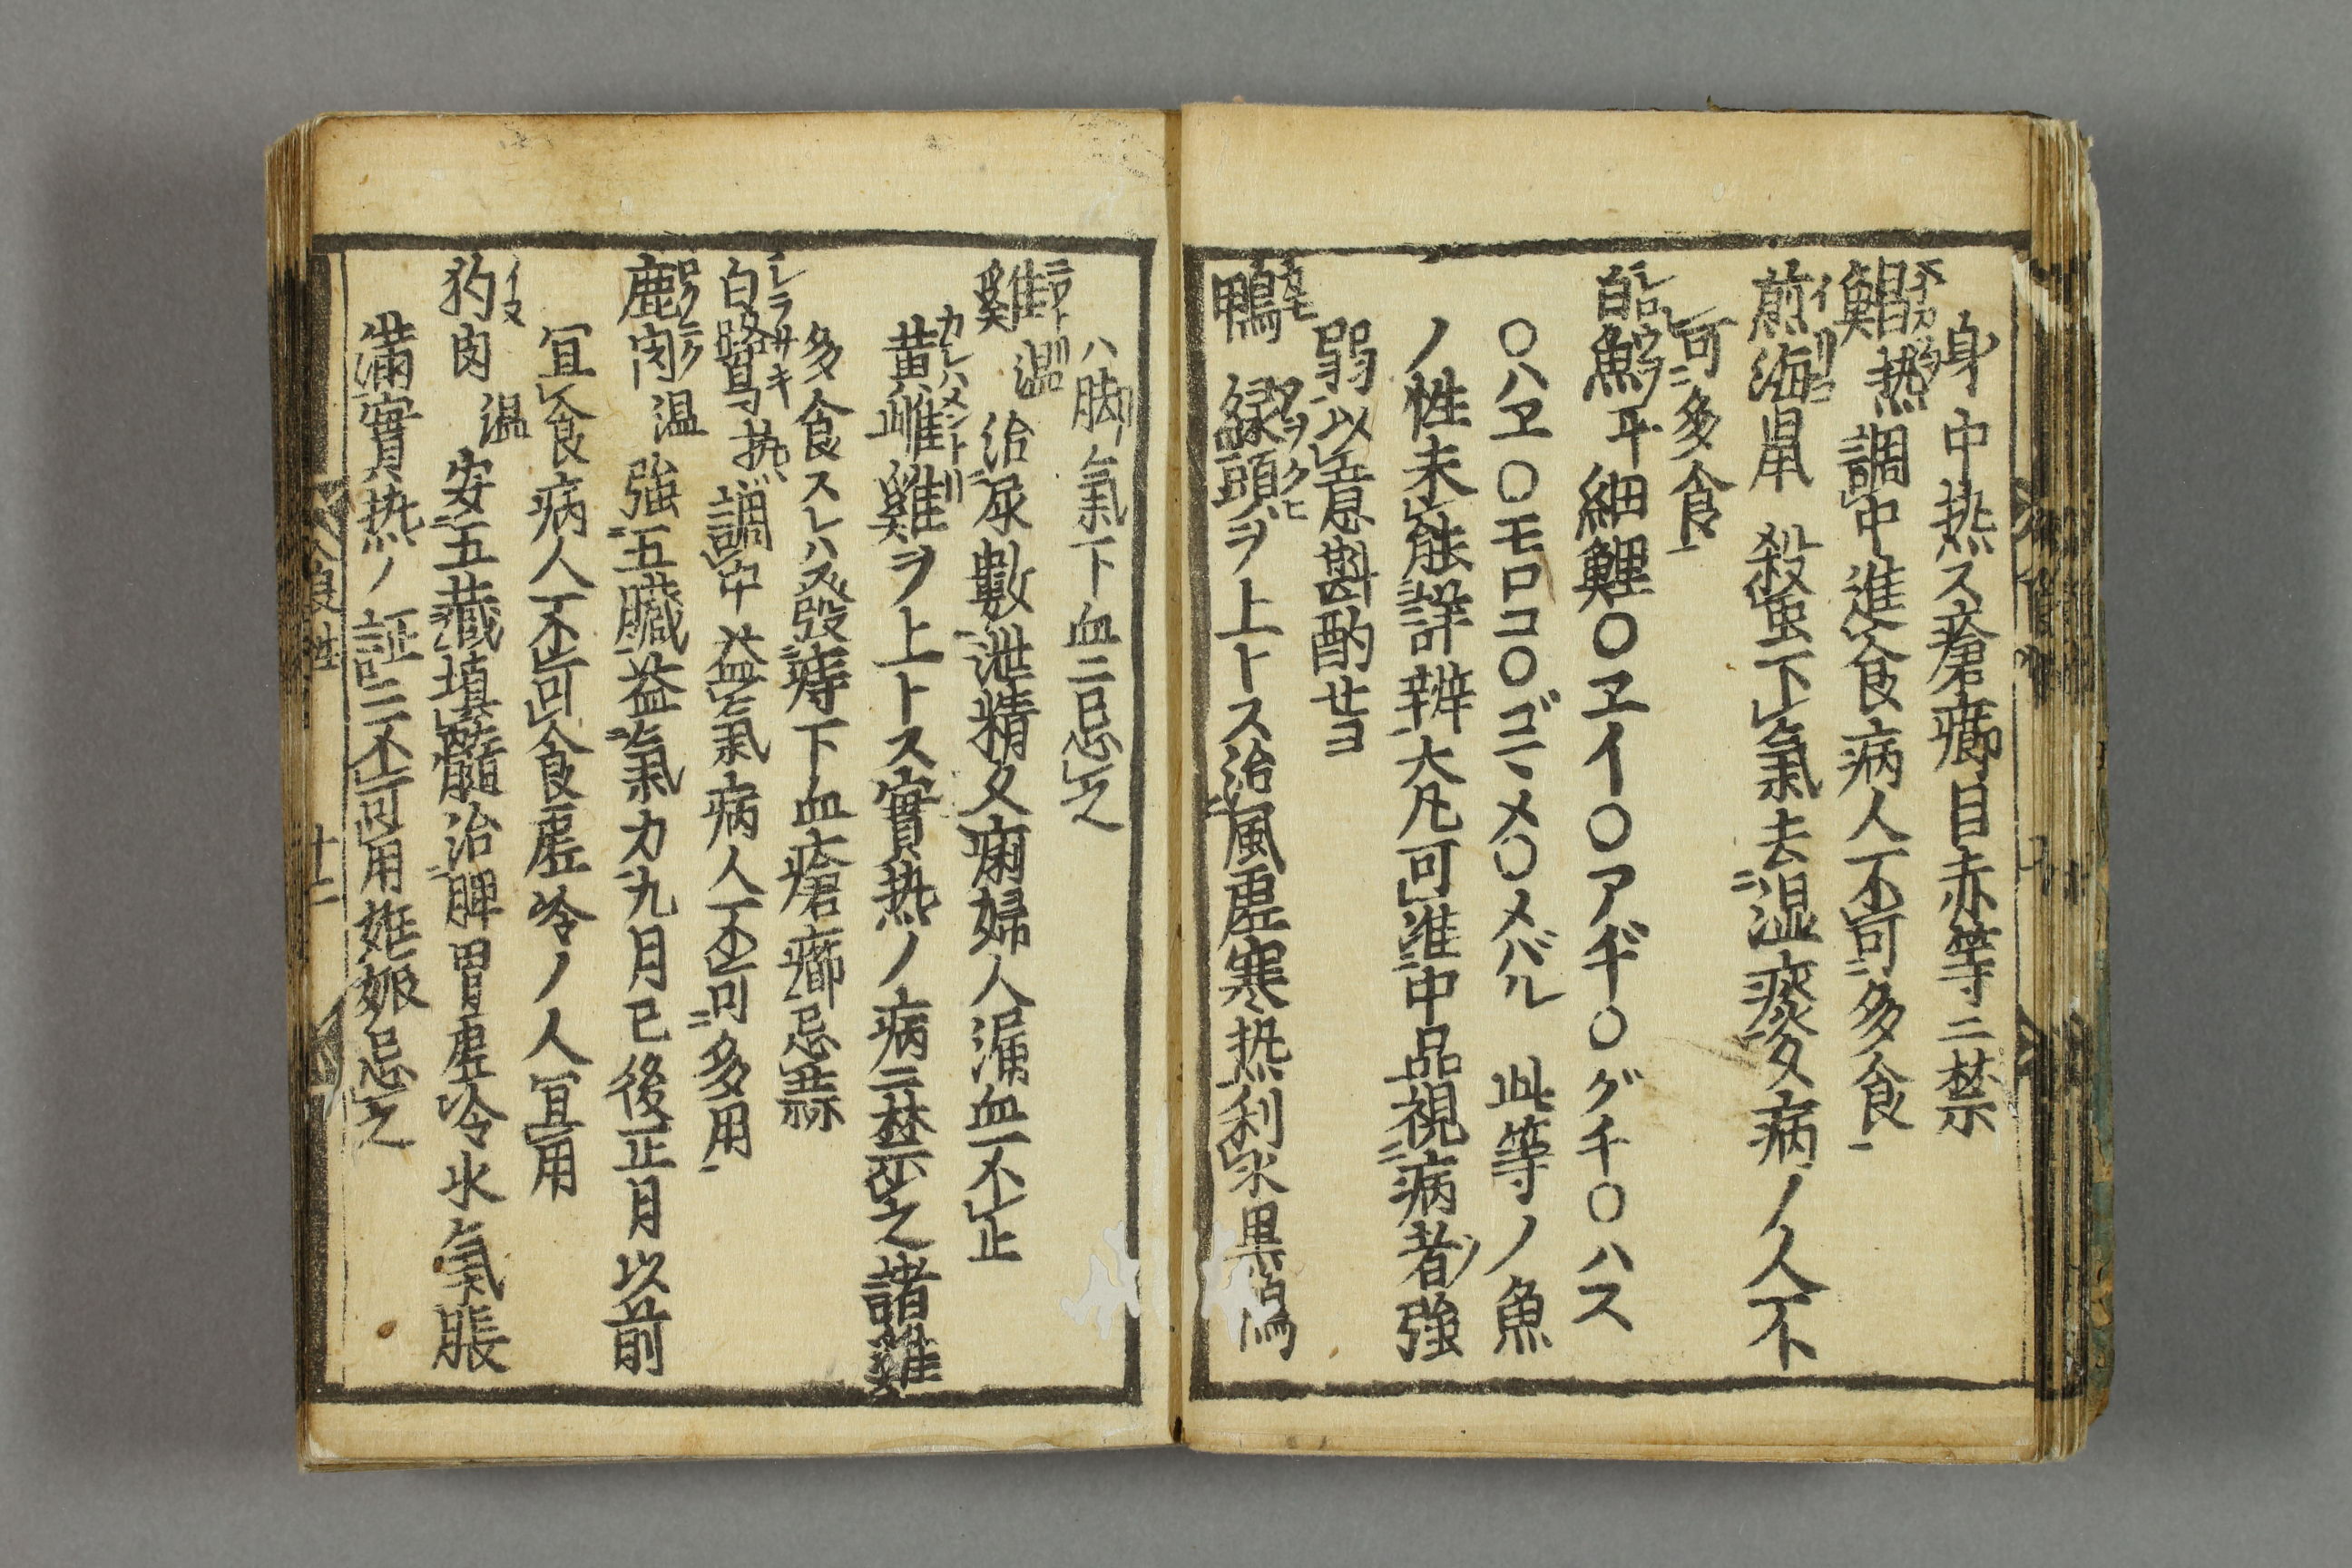 身中热ス瘡癤目赤等ニ禁
鯧 热 調中進食病人不可多食
煎海鼠 殺虫下氣去湿痰久病ノ人不
可多食
白魚 平 細鯉〇ヱイ〇アヂ〇グチ〇ハス
〇ハヱ〇モロコ〇ゴニヽメ〇メバル 此等ノ魚
ノ性未能詳辨大凢可准中品視病者強
弱以意斟酌せヨ
鴨 緑頭ヲ上トス治風虚寒热利水異
ハ脚氣下血ニ忌之
雞 温 治尿數泄精久痢婦人漏血不止
黄雌雞ヲ上トス實热ノ病ニ禁之諸雞
多食スレハ發痔下血瘡癤忌蒜
白鷺 热 調中益氣病人不可多用
鹿肉 温 強五臓益氣力九月已後正月以前
冝食病人不可食虚冷ノ人冝用
犳肉 温 安五藏填髓治脾胃虚冷水氣脹
滿實热ノ証ニ不可用姙娠忌之
食性 十二